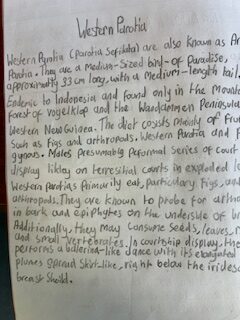 Western Parotia
Western Parotia (Parotia Sefilata) are also known as Ar
Parotia. They are a medium-Sized bird-of Paradise,
approximatly 33 cm long, with a Medium-length tail.
Endemic to Indonesia and found only in the Mounta
forest of Vogelkop and the Wandammen Peninsula
Western New Guinea. The diet cosists mainly of Fru
Such as figs and arthropods. Western Parotia and P
gynous. Males Presumably Peformal Series of court
display likley on terrestial courts in exploded le
Western Parotias Primarily eat, particulary Figs, and
arthropods. They are known to probe for arthro
in bark and epiphytes on the underside of br
Additionally, they may consume seeds, leaves, n
and small-vertebrates. In courtship display, the
performs a ballerina-like dance with its elongated
plumes Spread Skirt-like, right below the irides
breast Sheild.